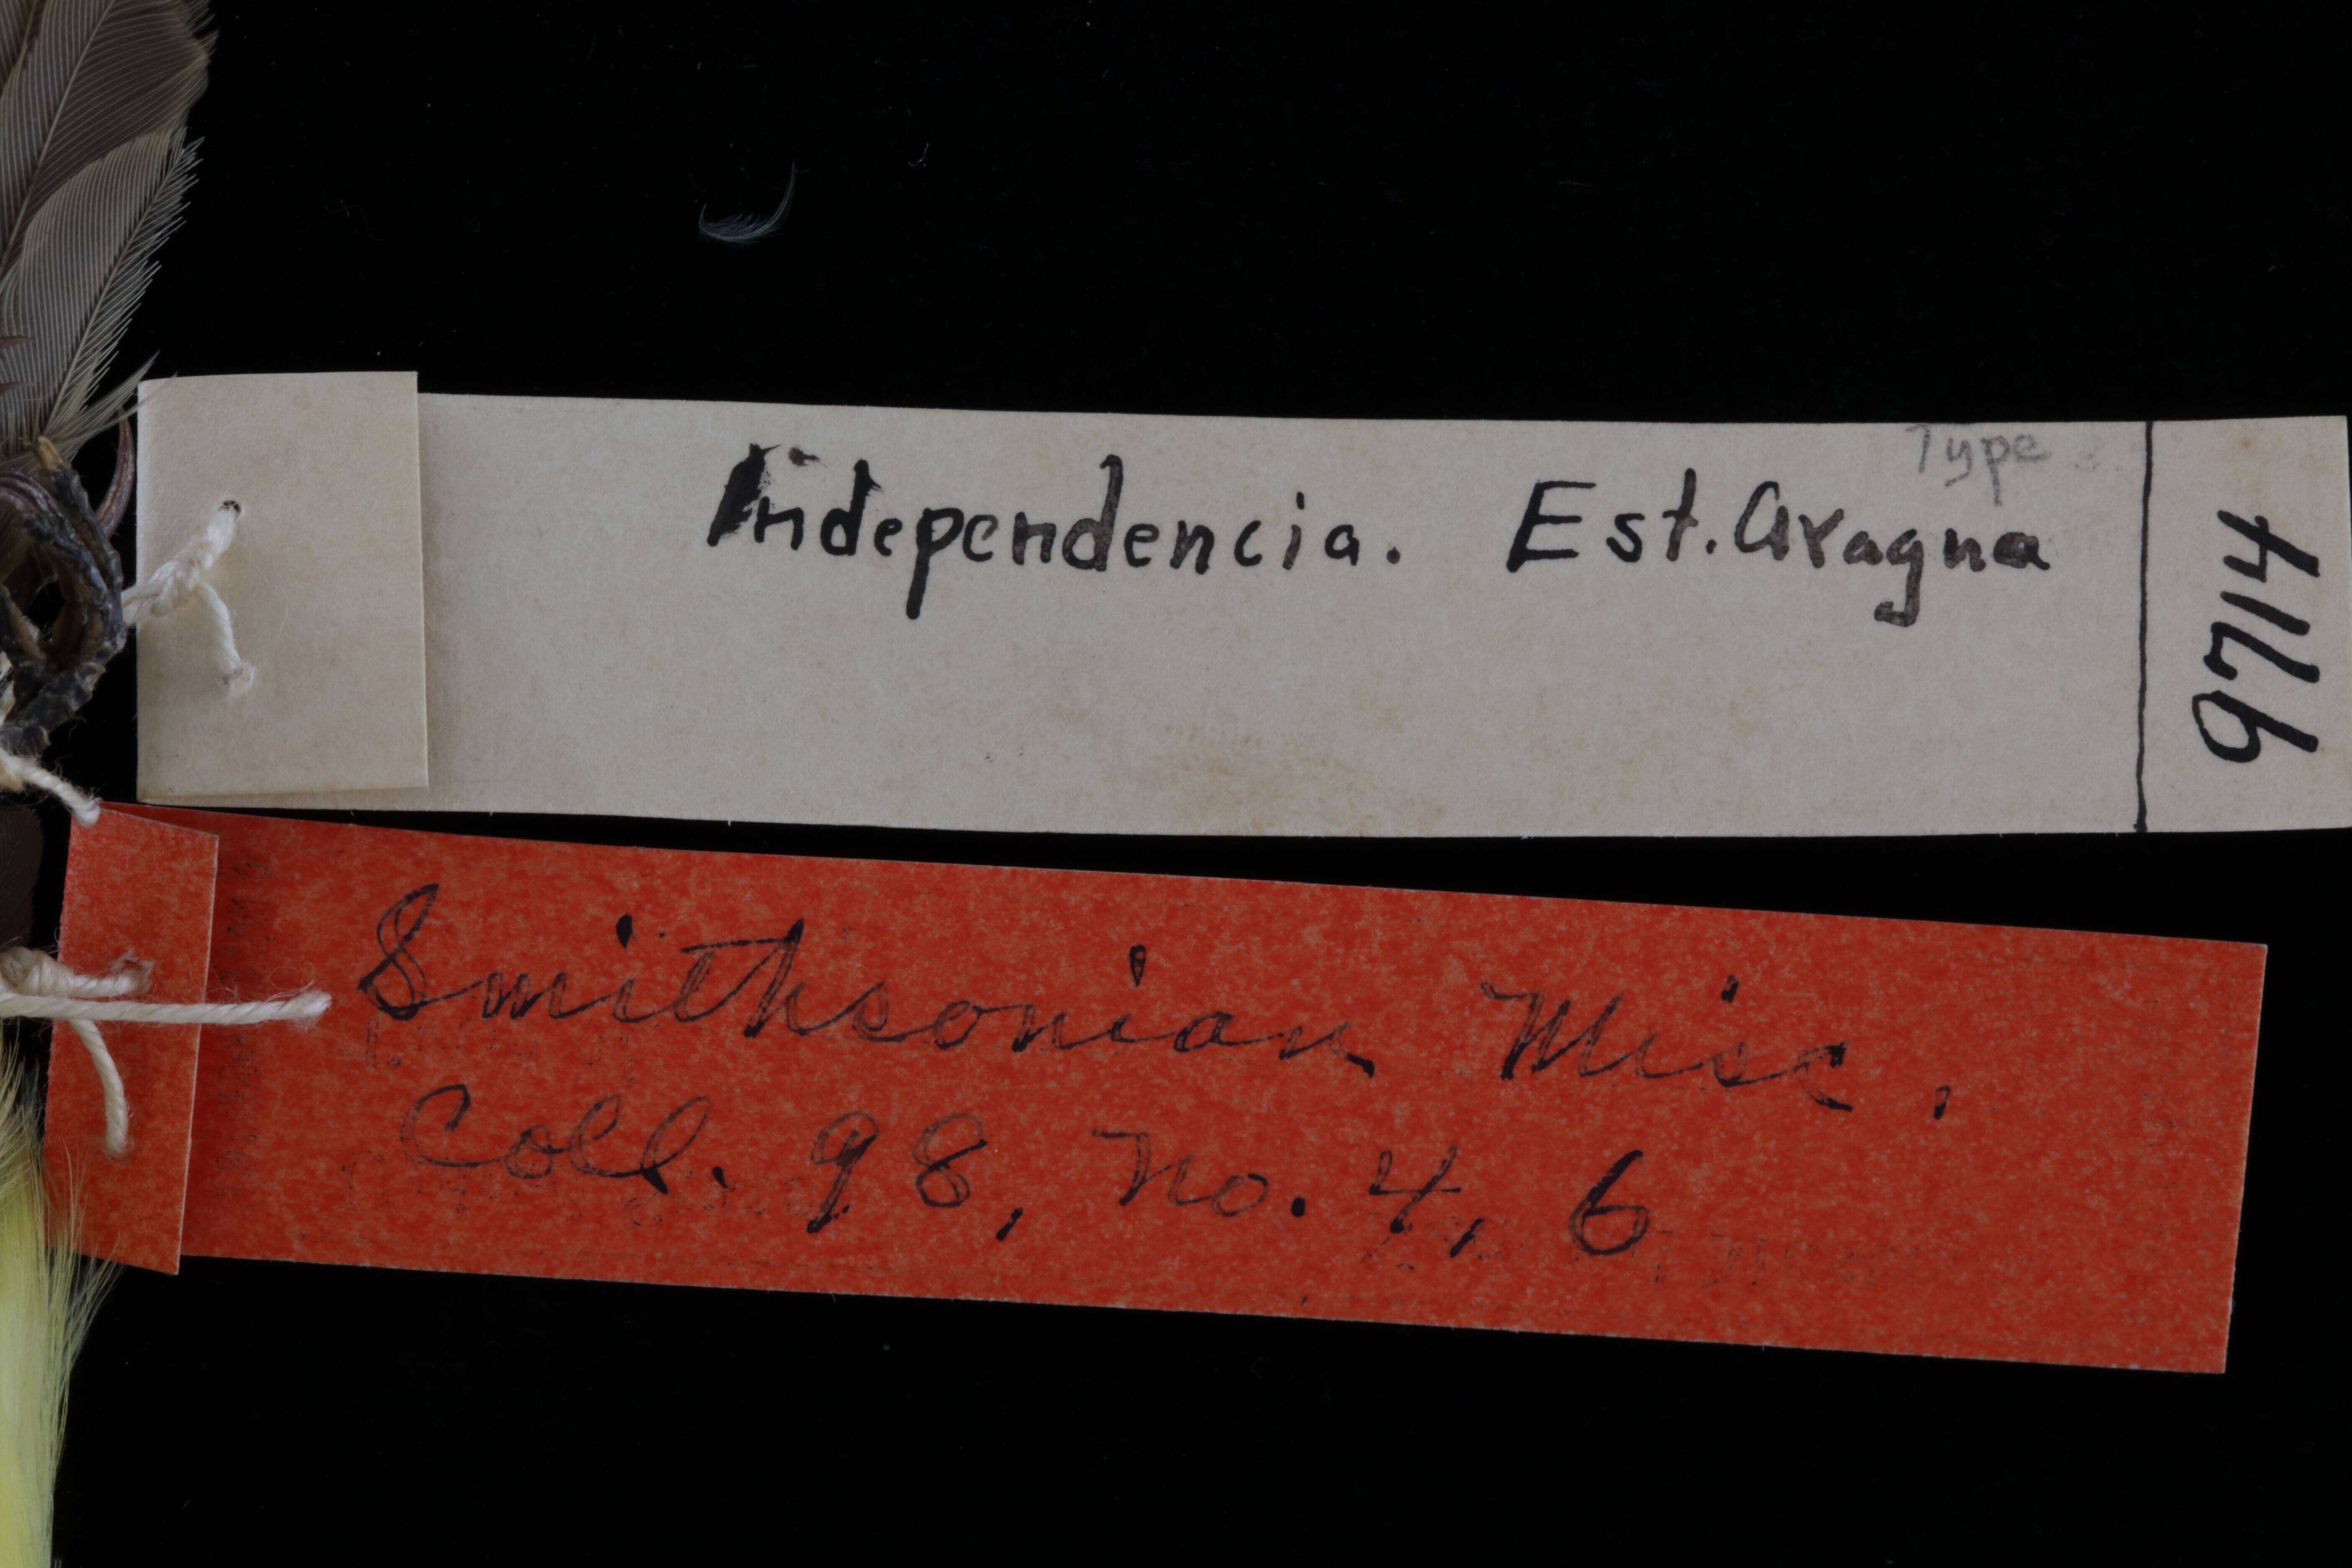 Type
Independencia. Est. Aragua
9714
Smithsonian Misc.
Coll. 98, no. 4, 6